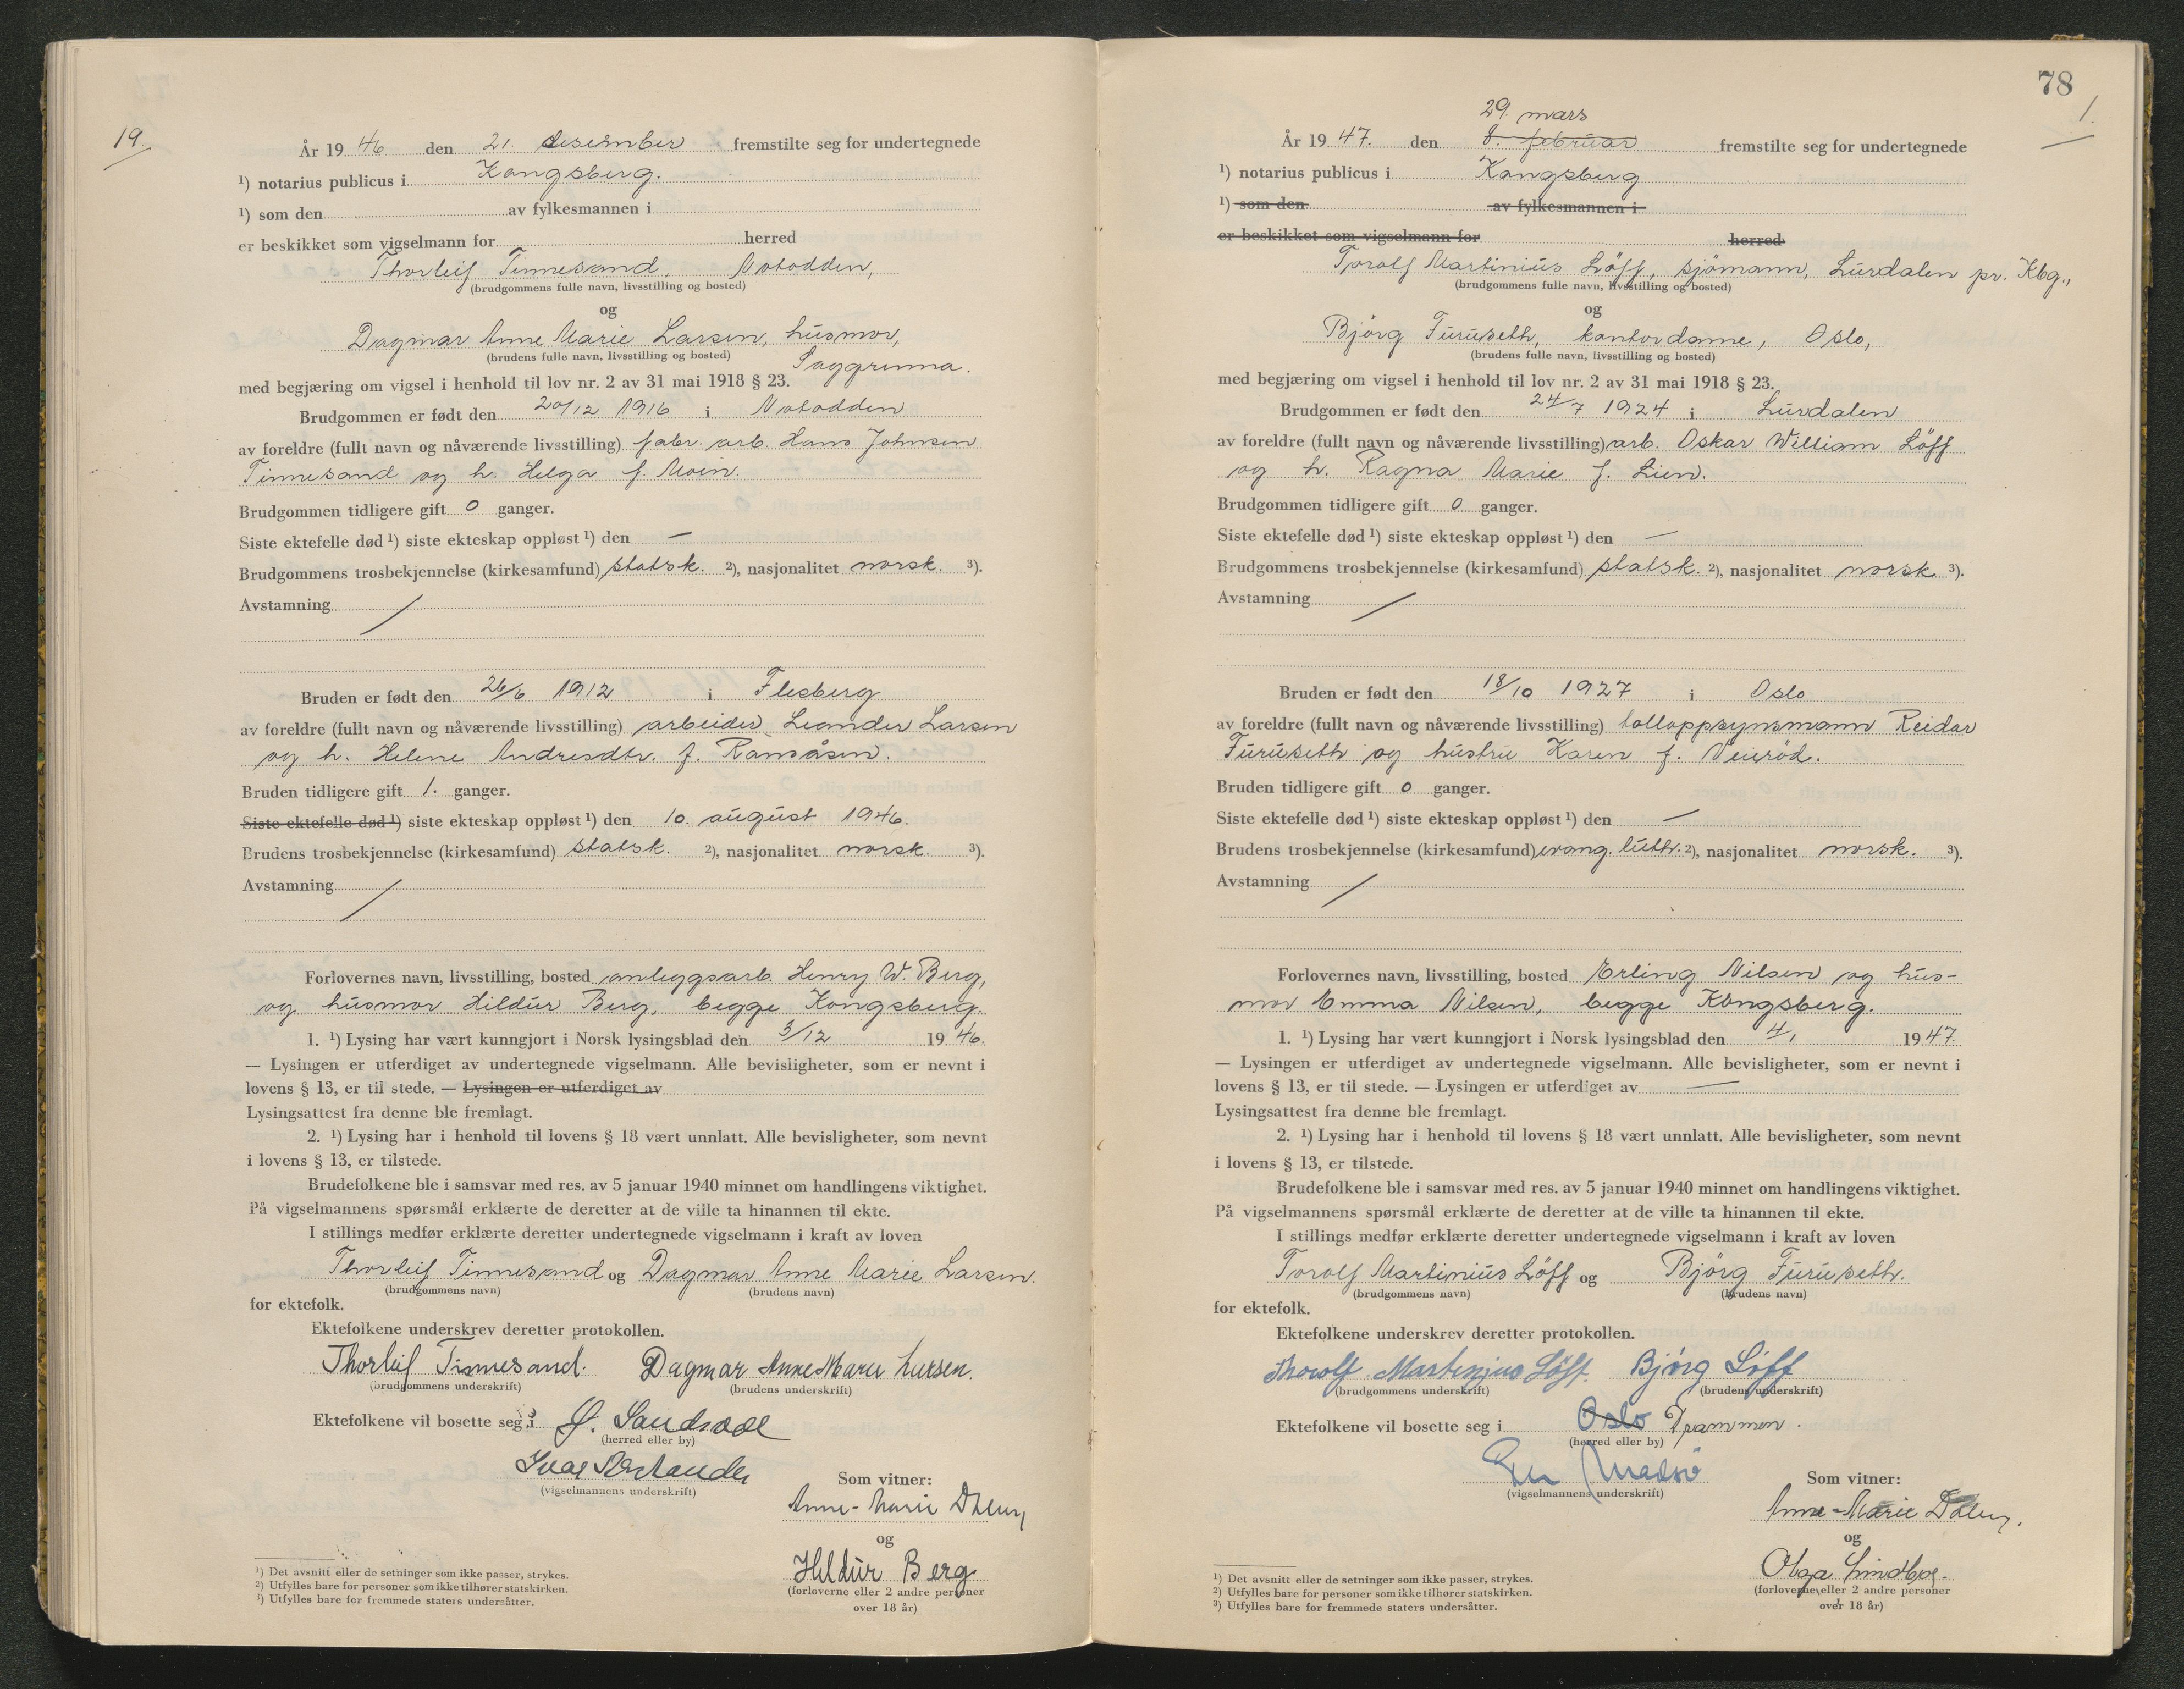 19.
År 19 46 den 21. desember fremstilte seg for undertegnede
¹) notarius publicus i Kongsberg.
¹) som den av fylkesmannen i
er beskikket som vigselmann for herred
Thorleif Tinnesand, Notodden,
(brudgommens fulle navn, livsstilling og bosted)
og
Dagmar Anne Marie Larsen, husmor,
(brudens fulle navn, livsstilling og bosted) Saggrenna.
med begjæring om vigsel i henhold til lov nr. 2 av 31 mai 1918 § 23.
Brudgommen er født den 20/12 1916 i Notodden
av foreldre (fullt navn og nåværende livsstilling) fabr. arb. Hans Johnsen
Tinnesand og h. Helga f. Moen.
Brudgommen tidligere gift 0 ganger.
Siste ektefelle død ¹) siste ekteskap oppløst ¹) den —
Brudgommens trosbekjennelse (kirkesamfund) statsk. ²), nasjonalitet norsk. ³).
Avstamning /
Bruden er født den 26/6 1912 i Flesberg
av foreldre (fullt navn og nåværende livsstilling) arbeider Leander Larsen
og h. Helene Andresdtr. f. Ramsåsen.
Bruden tidligere gift 1. ganger.
Siste ektefelle død ¹) siste ekteskap oppløst ¹) den 10. august 1946.
Brudens trosbekjennelse (kirkesamfund) statsk. ²), nasjonalitet norsk. ³).
Avstamning /
Forlovernes navn, livsstilling, bosted anleggsarb. Henry W. Berg,
og husmor Hildur Berg, begge Kongsberg.
1. ¹) Lysing har vært kunngjort i Norsk lysingsblad den 3/12 19 46.
— Lysingen er utferdiget av undertegnede vigselmann. Alle bevisligheter, som er nevnt i
lovens § 13, er til stede. — Lysingen er utferdiget av
Lysingsattest fra denne ble fremlagt.
2. ¹) Lysing har i henhold til lovens § 18 vært unnlatt. Alle bevisligheter, som nevnt
i lovens § 13, er tilstede.
Brudefolkene ble i samsvar med res. av 5 januar 1940 minnet om handlingens viktighet.
På vigselmannens spørsmål erklærte de deretter at de ville ta hinannen til ekte.
I stillings medfør erklærte deretter undertegnede vigselmann i kraft av loven
Thorleif Tinnesand og Dagmar Anne Marie Larsen.
(brudgommens navn) (brudens navn)
for ektefolk.
Ektefolkene underskrev deretter protokollen.
Thorleif Tinnesand. Dagmar Anne Marie Larsen.
(brudgommens underskrift) (brudens underskrift)
Ektefolkene vil bosette seg i Ø. Sandsvær
(herred eller by)
(vigselmannens underskrift)
Som vitner:
Anne-Marie
og
Hildur Berg
(forloverne eller 2 andre personer
over 18 år)
¹) Det avsnitt eller de setninger som ikke passer, strykes.
²) Utfylles bare for personer som ikke tilhører statskirken.
³) Utfylles bare for fremmede staters undersåtter.
78
1.
29. mars
År 19 47. den 8. februar fremstilte seg for undertegnede
¹) notarius publicus i Kongsberg
¹) som den av fylkesmannen i
er beskikket som vigselmann for herred
Torolf Martinius Löff, sjömann, Lurdalen pr. Kbg.,
(brudgommens fulle navn, livsstilling og bosted)
og
Björg Furuseth, kontordame, Oslo,
(brudens fulle navn, livsstilling og bosted)
med begjæring om vigsel i henhold til lov nr. 2 av 31 mai 1918 § 23.
Brudgommen er født den 24/7 1924 i Lurdalen
av foreldre (fullt navn og nåværende livsstilling) arb. Oskar William Löff
og h. Ragna Marie f. Lien.
Brudgommen tidligere gift 0 ganger.
Siste ektefelle død ¹) siste ekteskap oppløst ¹) den —
Brudgommens trosbekjennelse (kirkesamfund) statsk. ²), nasjonalitet norsk ³).
Avstamning /
Bruden er født den 18/10 1927 i Oslo
av foreldre (fullt navn og nåværende livsstilling) tolloppsynsmann Reidar
Furuseth og hustru Karen f. Veieröd.
Bruden tidligere gift 0 ganger.
Siste ektefelle død ¹) siste ekteskap oppløst ¹) den —
Brudens trosbekjennelse (kirkesamfund) evang. luth. ²), nasjonalitet norsk. ³).
Avstamning /
Forlovernes navn, livsstilling, bosted Erling Nilsen og hus-
mor Emma Nilsen, begge Kongsberg.
1. ¹) Lysing har vært kunngjort i Norsk lysingsblad den 4/1 19 47.
— Lysingen er utferdiget av undertegnede vigselmann. Alle bevisligheter, som er nevnt i
lovens § 13, er til stede. — Lysingen er utferdiget av —
Lysingsattest fra denne ble fremlagt.
2. ¹) Lysing har i henhold til lovens § 18 vært unnlatt. Alle bevisligheter, som nevnt
i lovens § 13, er tilstede.
Brudefolkene ble i samsvar med res. av 5 januar 1940 minnet om handlingens viktighet.
På vigselmannens spørsmål erklærte de deretter at de ville ta hinannen til ekte.
I stillings medfør erklærte deretter undertegnede vigselmann i kraft av loven
Torolf Martinius Löff og Björg Furuseth.
(brudgommens navn) (brudens navn)
for ektefolk.
Ektefolkene underskrev deretter protokollen.
Thorolf Martinius Löff. Bjørg Løff
(brudgommens underskrift) (brudens underskrift)
Ektefolkene vil bosette seg i Oslo Drammen.
(herred eller by)
(vigselmannens underskrift)
Som vitner:
Anne-Marie
og
Olga Lindberg.
(forloverne eller 2 andre personer
over 18 år)
¹) Det avsnitt eller de setninger som ikke passer, strykes.
²) Utfylles bare for personer som ikke tilhører statskirken.
³) Utfylles bare for fremmede staters undersåtter.